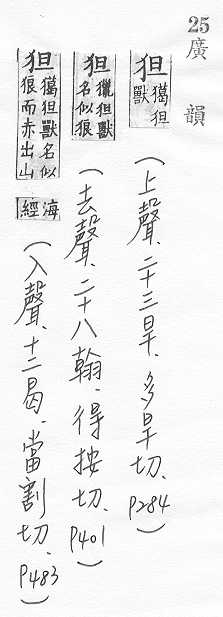 25 廣韻
狚 獦狚獸 (上聲、二十三旱、多旱切、P284)
狚 獵狚獸名似狼 (去聲、二十八翰、得按切、P401)
狚 獦狚獸名似狼而赤出山海經 (入聲、十二曷、當割切、P483)